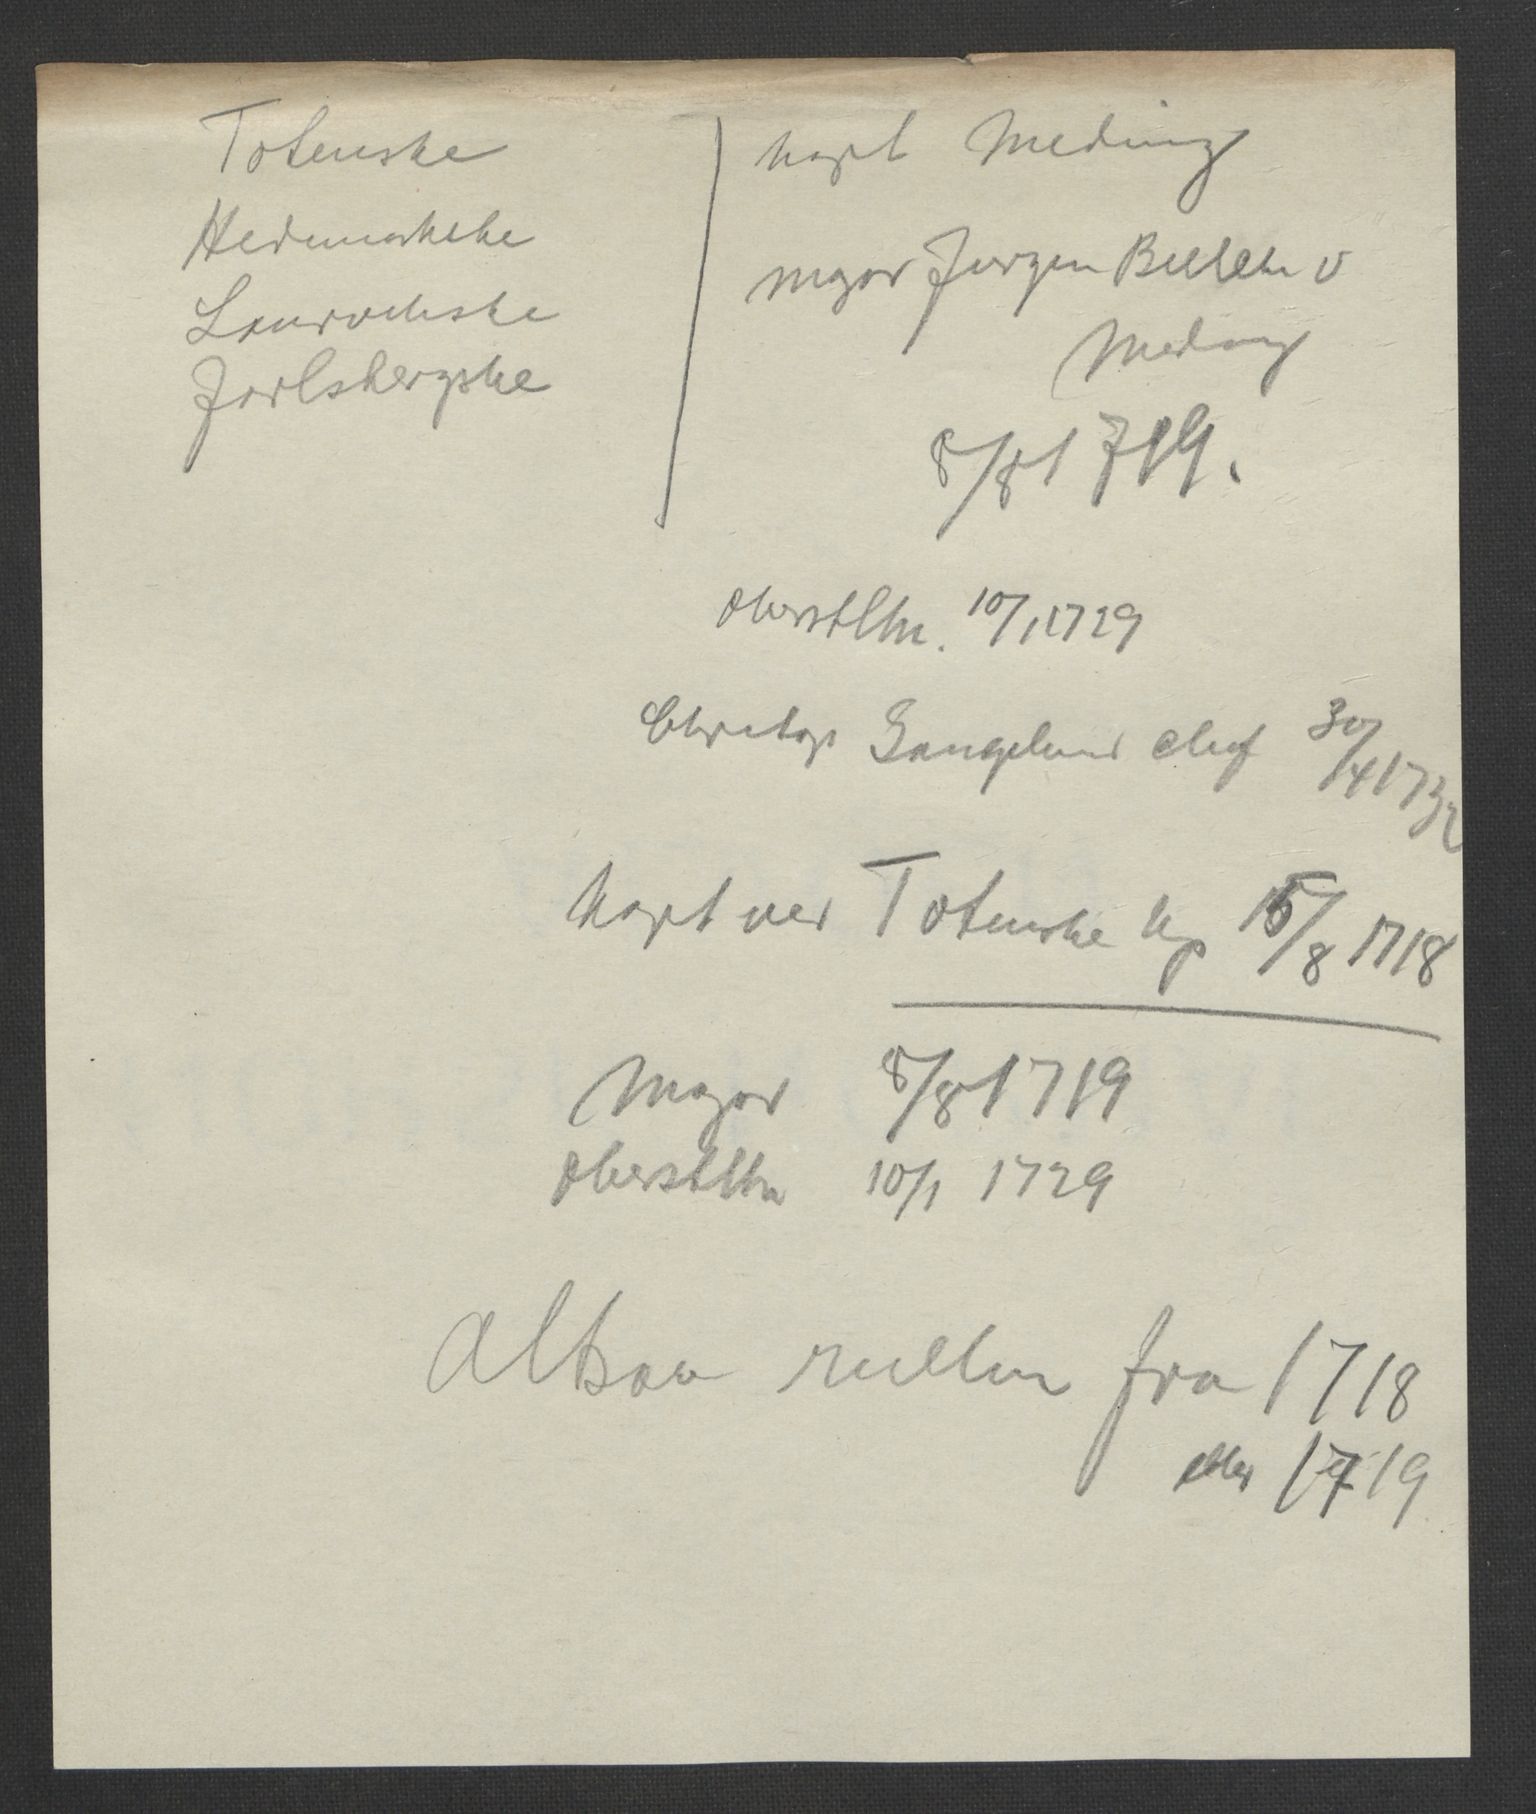 Totenske
Hedemarkske
Laurvikske
Jarlsbergske
kapt Meding
major Jürgen Bülche v
Meding
8/8 1719.
Oberstltn. 10/1 1729
chef 30/4 1732
Kapt ved Totenske kp 15/8 1718
Major 8/8 1719
Oberstltn 10/1 1729
Altsaa rullen fra 1718
eller 1719